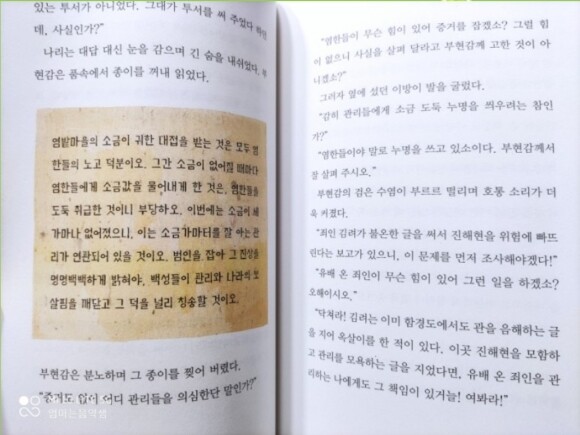 있는 투서가 아니었다. 그대가 투서를 써 주었다
데, 사실인가?”
나리는 대답 대신 눈을 감으며 긴 숨을 내쉬었다.
현감은 품속에서 종이를 꺼내 읽었다.
염밭마을의 소금이 귀한 대접을 받는 것은 모두 염
한들의 노고 덕분이오. 그간 소금이 없어질 때마다
염한들에게 소금값을 물어내게 한 것은, 염한들을
도둑 취급한 것이니 부당하오. 이번에는 소금이 세
가마나 없어졌으니, 이는 소금가마터를 잘 아는 관
리가 연관되어 있을 것이오. 범인을 잡아 그 진상을
명명백백하게 밝혀야, 백성들이 관리와 나라의 보
살핌을 깨닫고 그 덕을 널리 칭송할 것이오.
부현감은 분노하며 그 종이를 찢어 버렸다.
“증거도 없이 어디 관리들을 의심한단 말인가?”
엄마는음악쌤
“염한들이 무슨 힘이 있어 증거를 잡겠소? 그럴 힘
이 없으니 사실을 살펴 달라고 부현감께 고한 것이 아
니겠소?”
그러자 옆에 섰던 이방이 발을 굴렀다.
“감히 관리들에게 소금 도둑 누명을 씌우려는 참인
가?”
“염한들이야 말로 누명을 쓰고 있소이다. 부현감께서
잘 살펴 주시오.”
부현감의 검은 수염이 부르르 떨리며 호통 소리가 더
욱 커졌다.
“죄인 김려가 불온한 글을 써서 진해현을 위험에 빠뜨
린다는 보고가 있으니, 이 문제를 먼저 조사해야겠다!”
“유배 온 죄인이 무슨 힘이 있어 그런 일을 하겠소?
오해이시오.”
“닥쳐라! 김려는 이미 함경도에서도 관을 음해하는 글
을 지어 옥살이를 한 적이 있다. 이곳 진해현을 모함하
고 관리를 모욕하는 글을 지었다면, 유배 온 죄인을 관
리하는 나에게도 그 책임이 있거늘! 여봐라!”